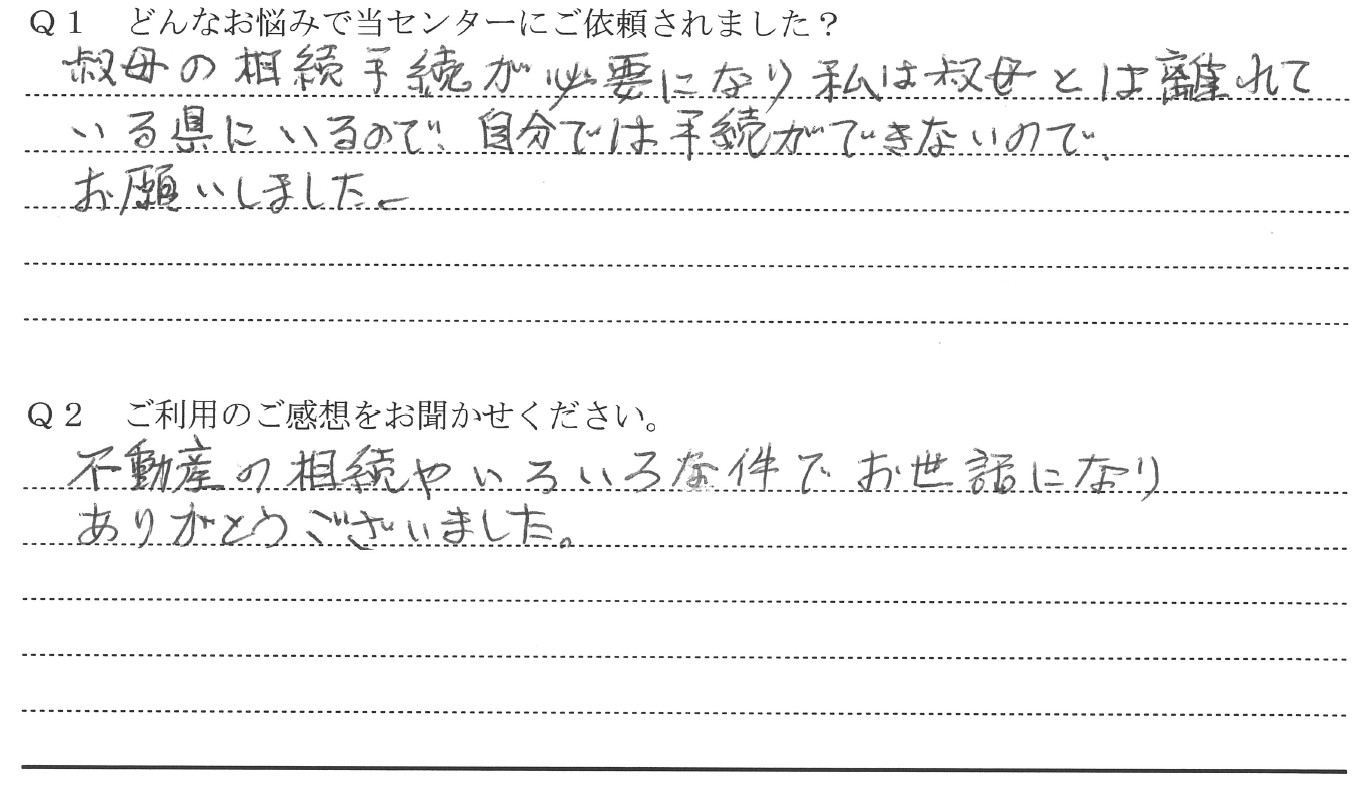 Q1　どんなお悩みで当センターにご依頼されました？
叔母の相続手続が必要になり私は叔母とは離れて
いる県にいるので、自分では手続ができないので、
お願いしました。
Q2　ご利用のご感想をお聞かせください。
不動産の相続やいろいろな件でお世話になり
ありがとうございました。